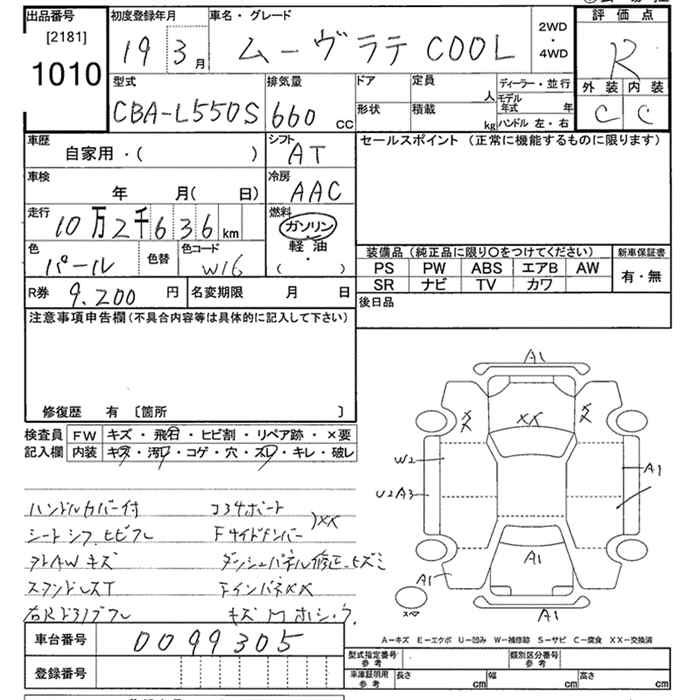 出品番号
[2181]
1010
初度登録年月
19 3月
車名・グレード
ムーヴラテ COOL
2WD
・
4WD
評価点
R
外装 内装
C C
型式
CBA-L550S
排気量
660 CC
ドア
定員
人
形状
積載
kg
ディーラー・並行
モデル年式 年
ハンドル 左・右
車歴
自家用・( )
シフト
AT
車検
年 月( 日)
冷房
AAC
走行
10万2千636km
燃料
ガソリン
軽油
・
( )
色
パール
色替
色コード
W16
R券 9,200円
名変期限 月 日
セールスポイント (正常に機能するものに限ります)
装備品 (純正品に限り○をつけてください)
PS PW ABS エアB AW
SR ナビ TV カワ
新車保証書
有・無
後日品
注意事項申告欄(不具合内容等は具体的に記入して下さい)
修復歴 有 〔箇所 〕
検査員記入欄
FW キズ・飛石・ヒビ割・リペア跡・×要
内装 キズ・汚レ・コゲ・穴・スレ・キレ・破レ
ハンドルカバー付
コラサポート
シートシワ、ヒビワレ
Fサイドメンバー
)XX
AWキズ
ダッシュパネル修正、ヒズミ
FインパネXX
キズ
A1
XX
XX
XX
W2
U2A3
A1
A1
A1
A1
A-キズ E-エクボ U-凹み W-補修跡 S-サビ C-腐食 XX-交換済
車台番号
0099305
登録番号
型式指定番号
参考
類別区分番号
参考
車庫証明用
参考
長さ cm
幅 cm
高さ cm